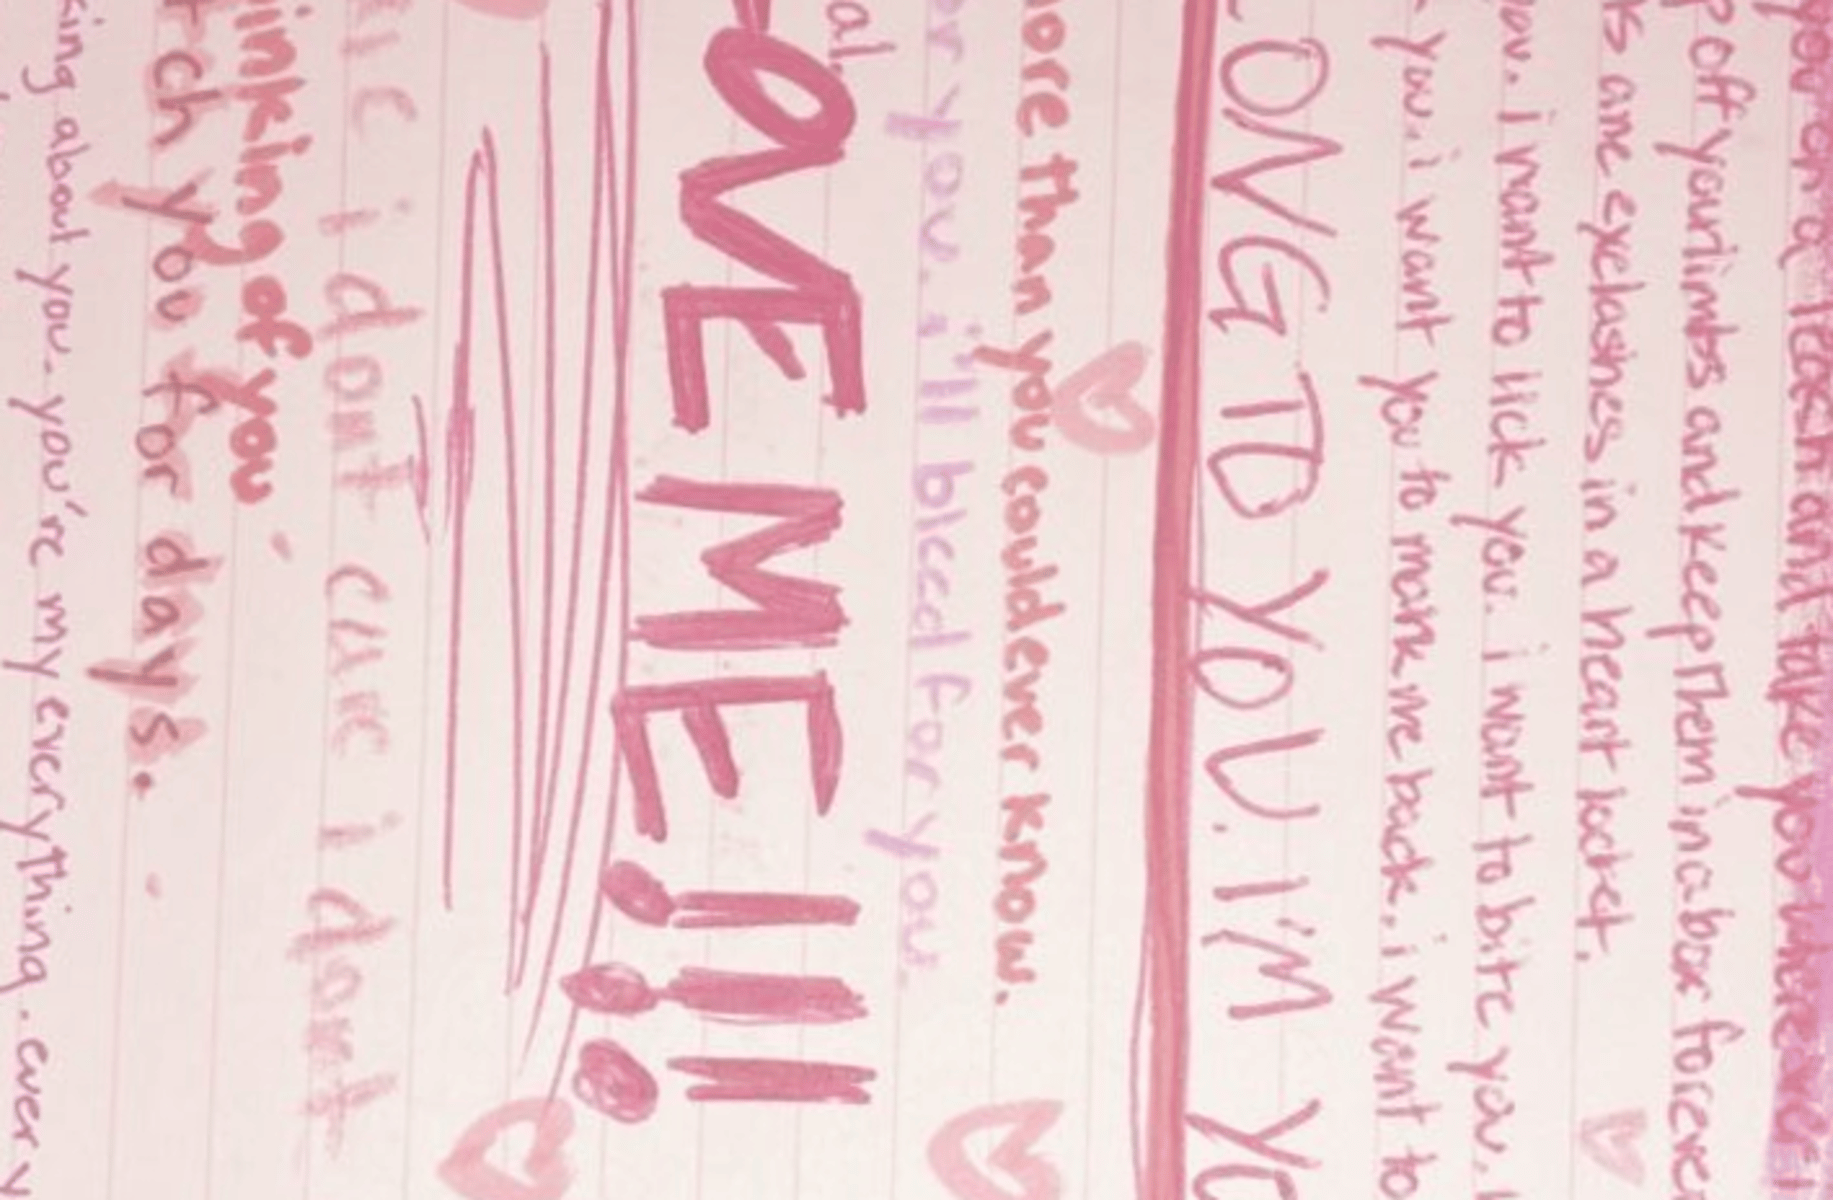 you on a leash and take you wherever i
p off your limbs and keep them in a box foreve
as and eyelashes in a heart locket.
you. i want to lick you. i want to bite you. i
you. i want you to mark me back. i want to
LONG TO YOU. I'M YO
more than you could ever know.
or you. i'll bleed for you.
al.
LOVE ME!!!
i dont care i dont
inking of you
tch you for days.
king about you. you're my everything. every